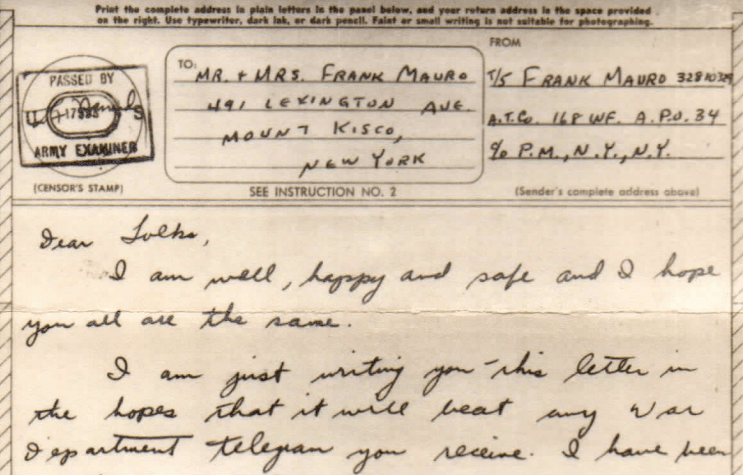 Print the complete address in plain letters in the panel below, and your return address in the space provided
on the right. Use typewriter, dark ink, or dark pencil. Faint or small writing is not suitable for photographing.
PASSED BY
U S
ARMY EXAMINER
(CENSOR'S STAMP)
TO:
MR. & MRS. FRANK MAURO
491 LEXINGTON AVE.
MOUNT KISCO,
NEW YORK
SEE INSTRUCTION NO. 2
FROM
T/5 FRANK MAURO
A.T.Co. 168 INF. A.P.O. 34
% P.M., N.Y., N.Y.
(Sender's complete address above)
Dear Folks,
I am well, happy and safe and I hope
you all are the same.
I am just writing you this letter in
the hopes that it will beat any War
Department telegram you receive. I have been